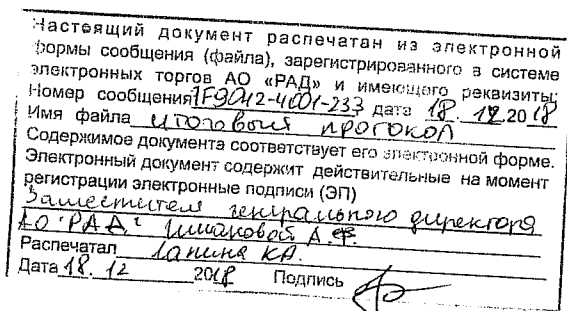 Настоящий документ распечатан из электронной
формы сообщения (файла), зарегистрированного в системе
электронных торгов АО «РАД» и имеющего реквизиты:
Номер сообщения дата 18.12.2018
Имя файла итоговый протокол
Содержимое документа соответствует его электронной форме.
Электронный документ содержит действительные на момент
регистрации электронные подписи (ЭП)
Заместителя генерального директора
АО "РАД" А.Ф.
Распечатал Лапина К.А.
Дата 18.12 2018 Подпись